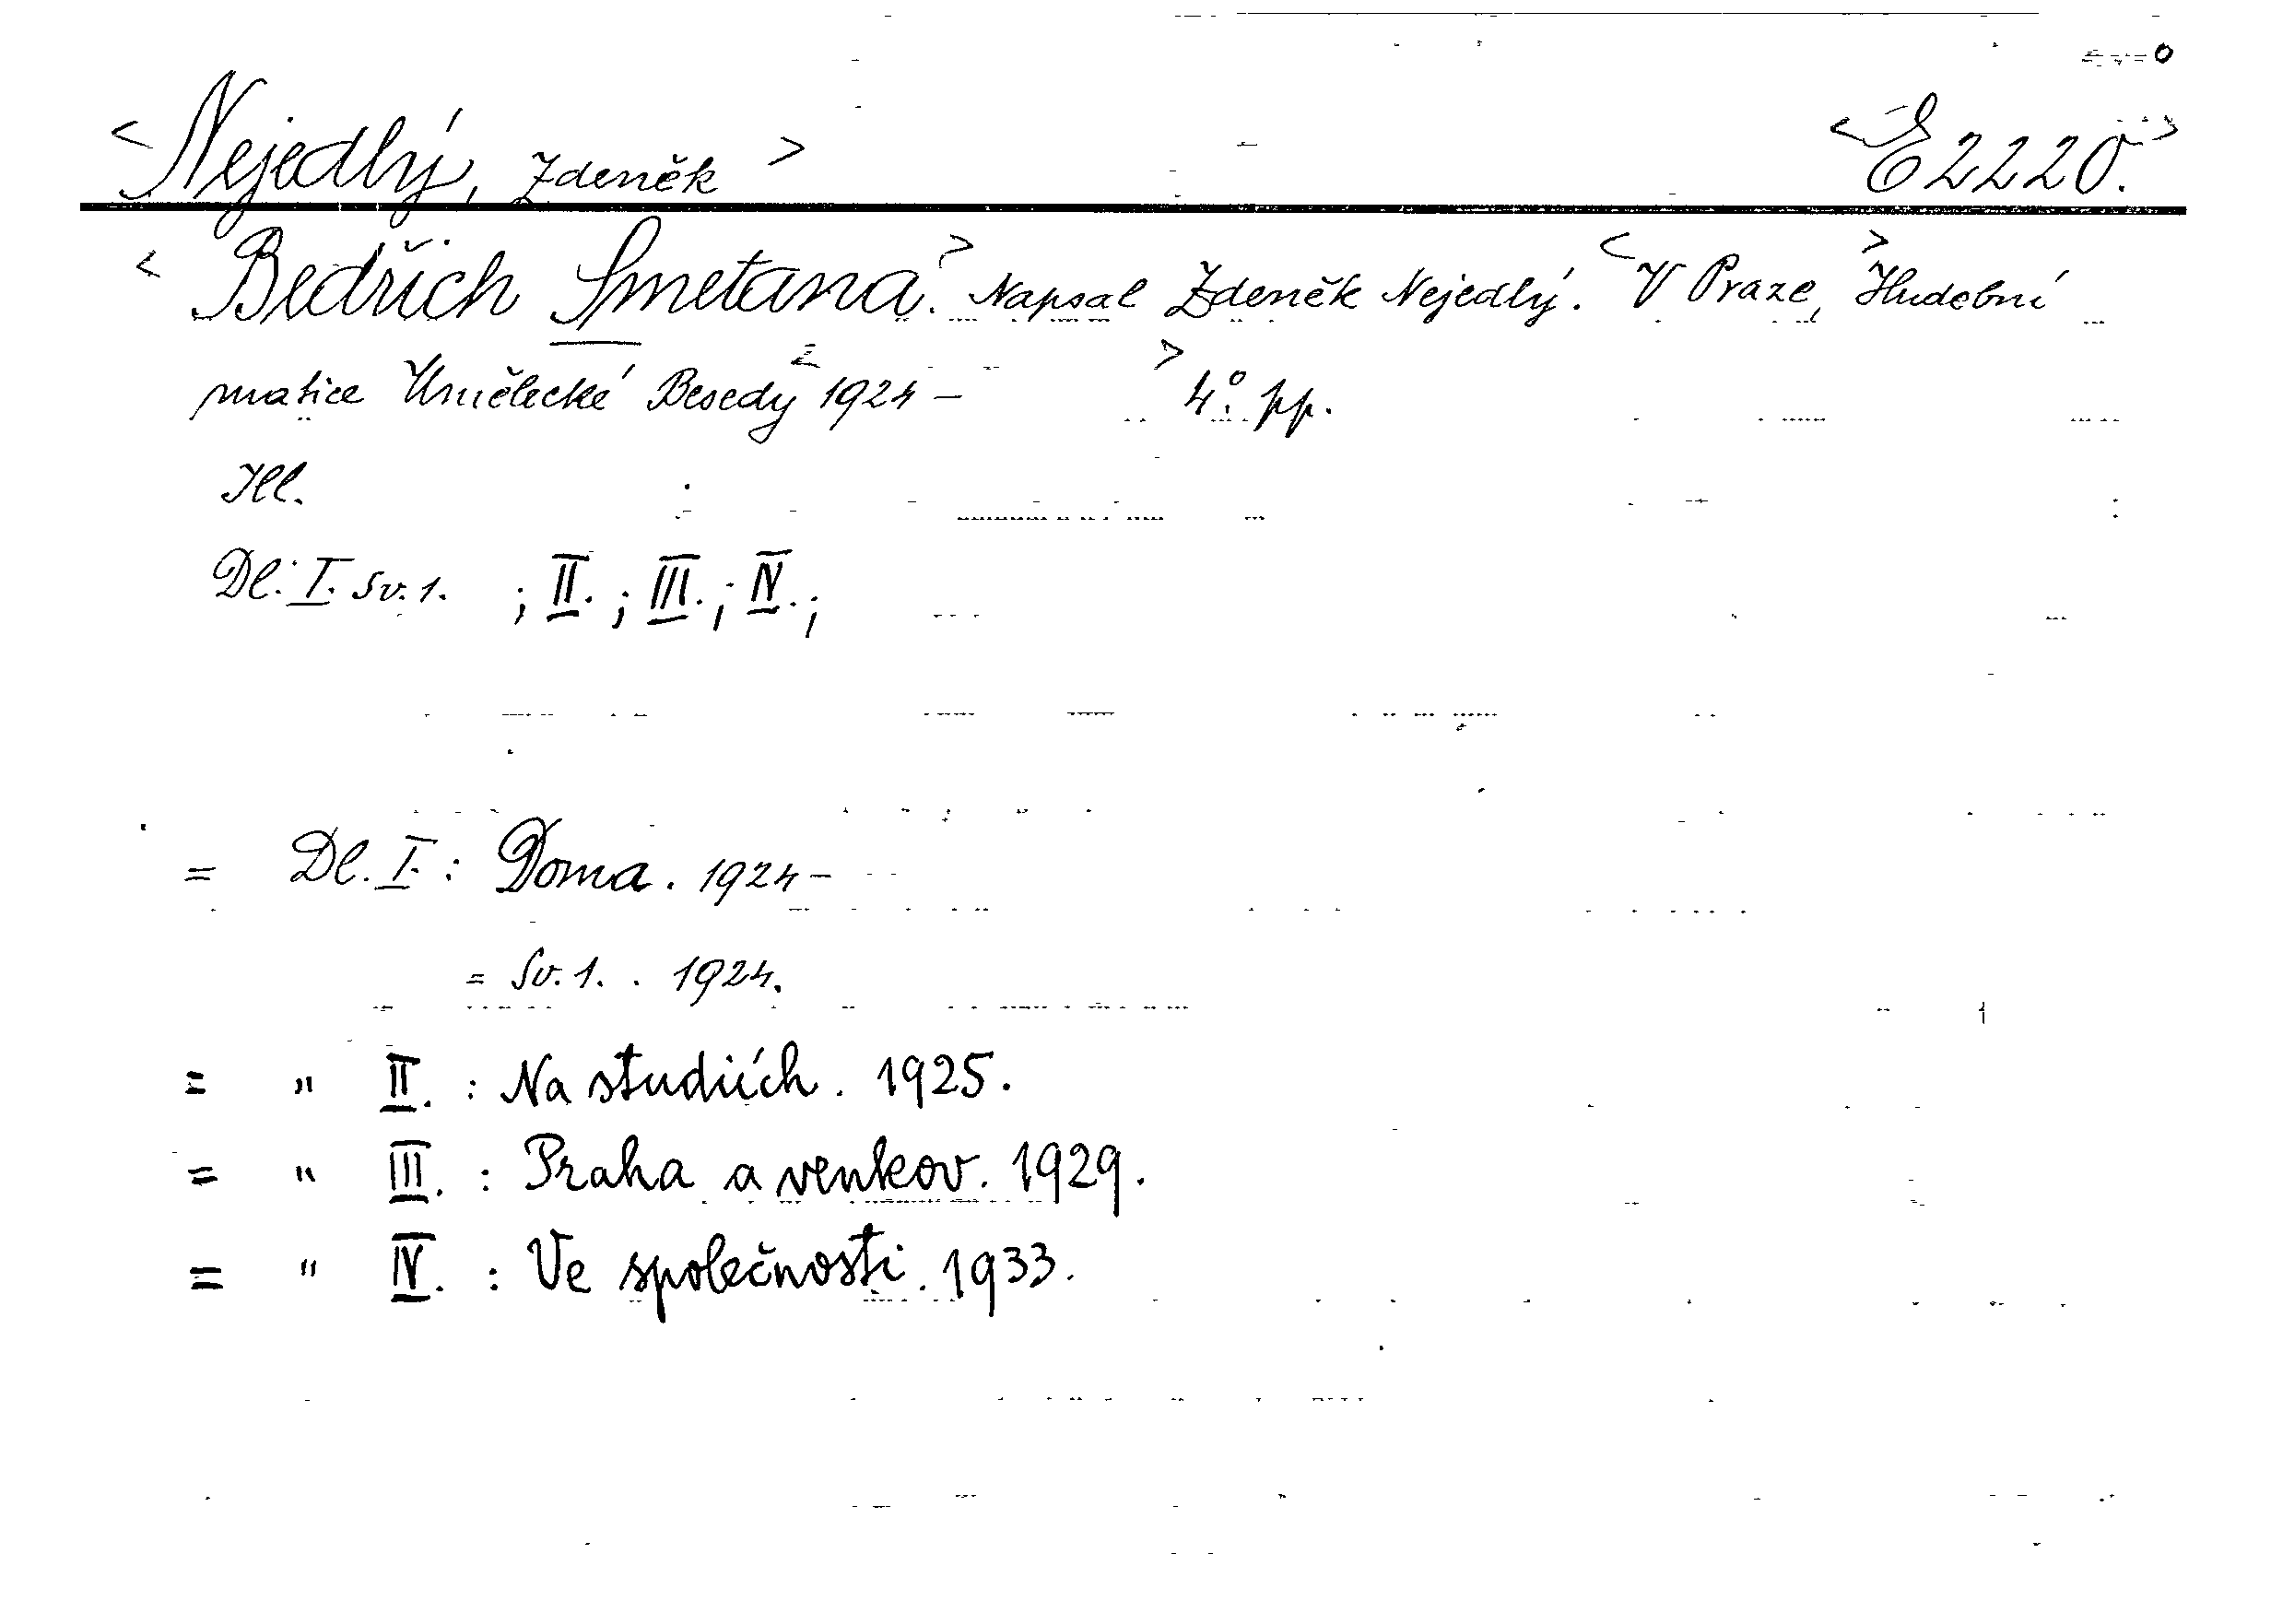 <Nejedlý, Zdeněk> <E 2220.>
<Bedřich Smetana.> Napsal Zdeněk Nejedlý. <V Praze,> Hudební
matice Umělecké Besedy < 1924 – > 4°. pp.
Ill.
Dl. I. Sv. 1. ; II. ; III. ; IV. ;
= Dl. I. : Doma. 1924 –
= Sv. 1. . 1924.
= " II. : Na studiích. 1925.
= " III. : Praha a venkov. 1929.
= " IV. : Ve společnosti. 1933.